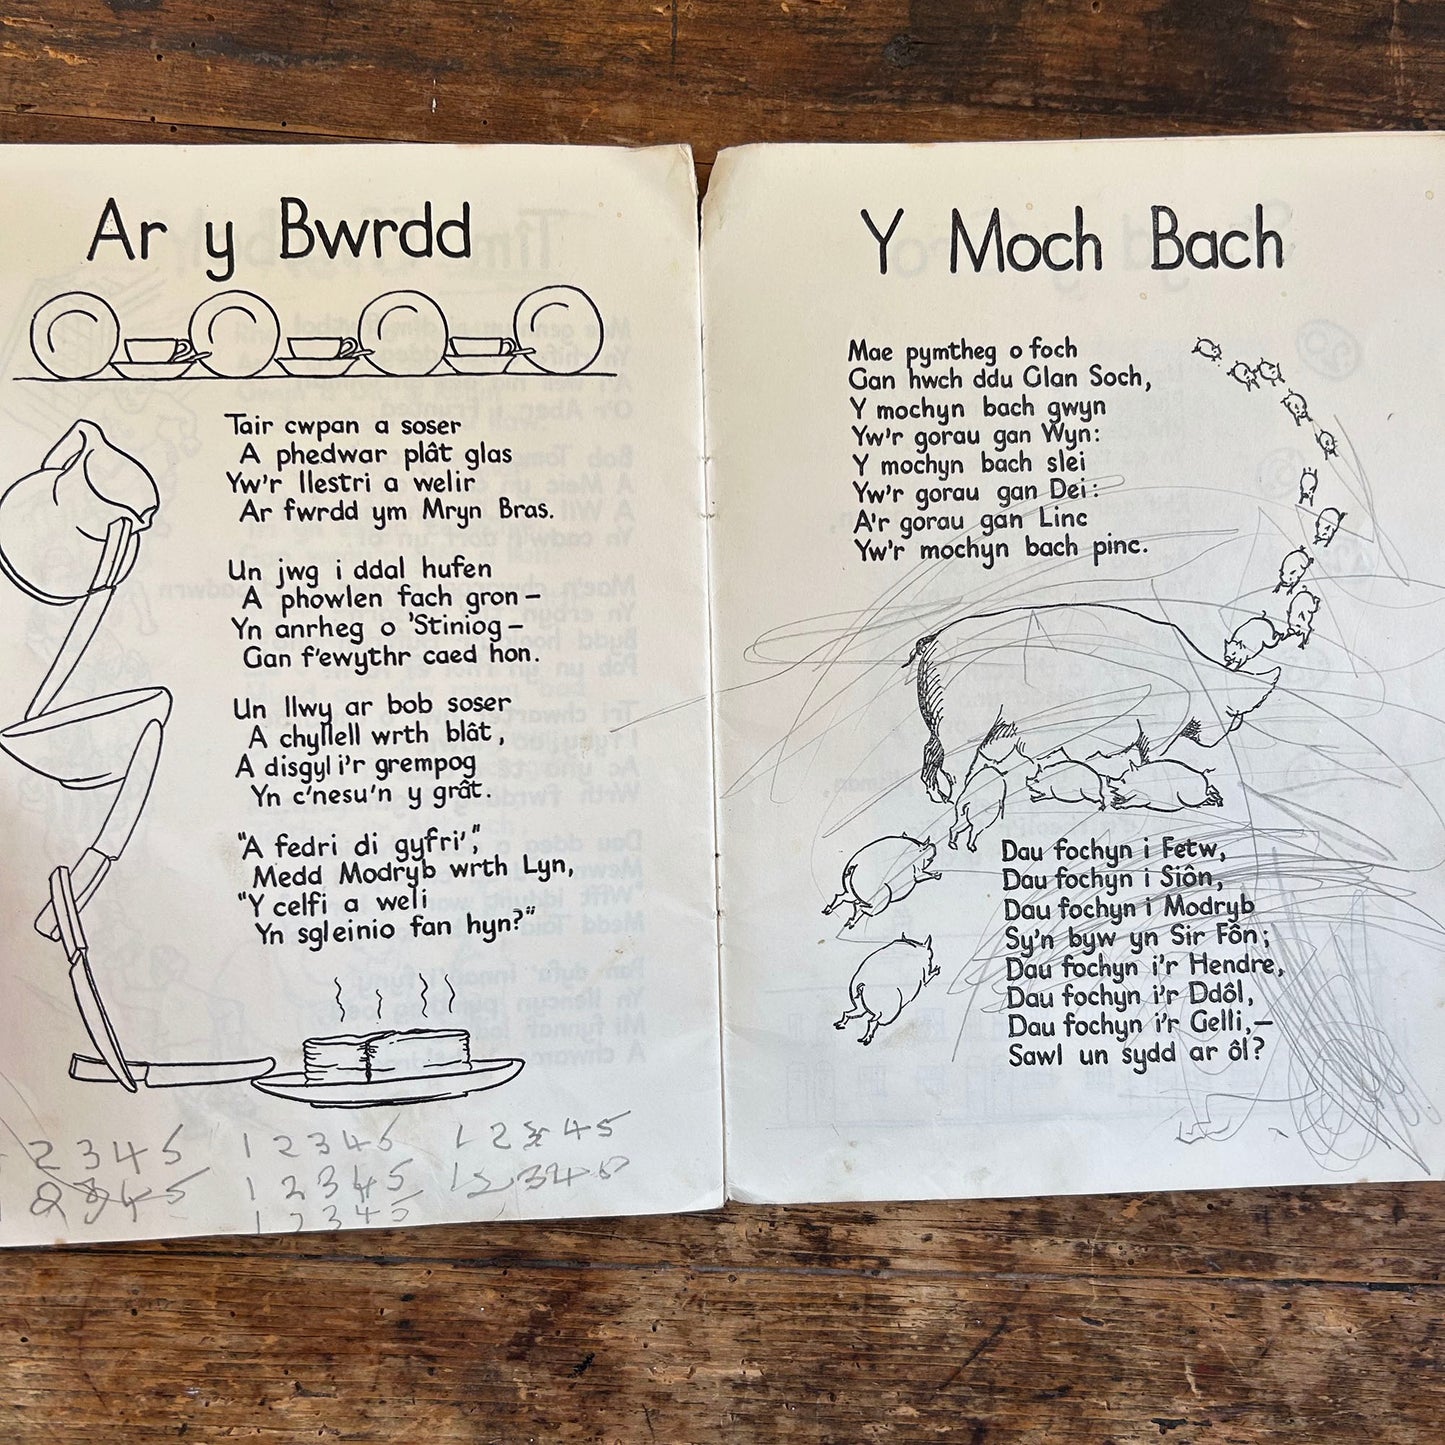 Ar y Bwrdd
Tair cwpan a soser
A phedwar plât glas
Yw'r llestri a welir
Ar fwrdd ym Mryn Bras.
Un jwg i ddal hufen
A phowlen fach gron —
Yn anrheg o 'Stiniog —
Gan f'ewythr caed hon.
Un llwy ar bob soser
A chyllell wrth blât,
A disgyl i'r grempog
Yn c'nesu'n y grât.
"A fedri di gyfri',"
Medd Modryb wrth Lyn,
"Y celfi a weli
Yn sgleinio fan hyn?"
2 3 4 5 1 2 3 4 5 1 2 3 4 5
2 3 4 5 1 2 3 4 5 1 2 3 4 5
1 2 3 4 5
Y Moch Bach
Mae pymtheg o foch
Gan hwch ddu Glan Soch,
Y mochyn bach gwyn
Yw'r gorau gan Wyn:
Y mochyn bach slei
Yw'r gorau gan Dei:
A'r gorau gan Linc
Yw'r mochyn bach pinc.
Dau fochyn i Fetw,
Dau fochyn i Siôn,
Dau fochyn i Modryb
Sy'n byw yn Sir Fôn;
Dau fochyn i'r Hendre,
Dau fochyn i'r Ddôl,
Dau fochyn i'r Gelli,—
Sawl un sydd ar ôl?